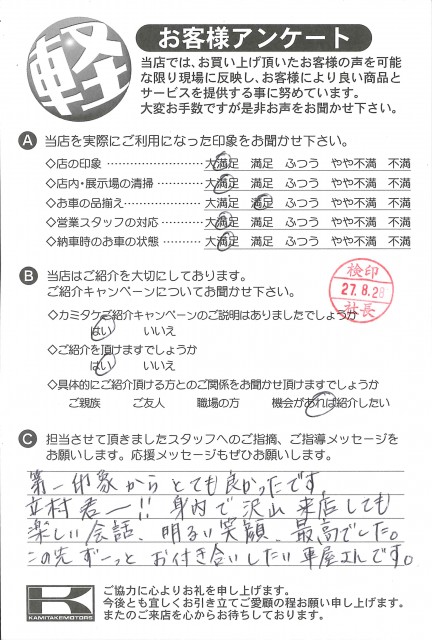 軽
お客様アンケート
当店では、お買い上げ頂いたお客様の声を可能
な限り現場に反映し、お客様により良い商品と
サービスを提供する事に努めています。
大変お手数ですが是非お声をお聞かせ下さい。
A 当店を実際にご利用になった印象をお聞かせ下さい。
◇店の印象 ………………… 大満足 満足 ふつう やや不満 不満
◇店内・展示場の清掃 ………… 大満足 満足 ふつう やや不満 不満
◇お車の品揃え ……………… 大満足 満足 ふつう やや不満 不満
◇営業スタッフの対応 ………… 大満足 満足 ふつう やや不満 不満
◇納車時のお車の状態 ………… 大満足 満足 ふつう やや不満 不満
B 当店はご紹介を大切にしております。
ご紹介キャンペーンについてお聞かせ下さい。
検印
27.8.28
社長
◇カミタケご紹介キャンペーンのご説明はありましたでしょうか
はい いいえ
◇ご紹介を頂けますでしょうか
はい いいえ
◇具体的にご紹介頂ける方とのご関係をお聞かせ頂けますでしょうか
ご親族 ご友人 職場の方 機会があれば紹介したい
C 担当させて頂きましたスタッフへのご指摘、ご指導メッセージを
お願いします。応援メッセージもぜひお願いします。
第一印象からとても良かったです。
立村君ー!! 身内で沢山来店しても
楽しい会話、明るい笑顔、最高でした。
この先ずーっとお付き合いしたい車屋さんです。
KAMITAKEMOTORS
ご協力に心よりお礼を申し上げます。
今後とも宜しくお引き立てご愛顧の程お願い申し上げます。
またのご来店を心からお待ちしております。